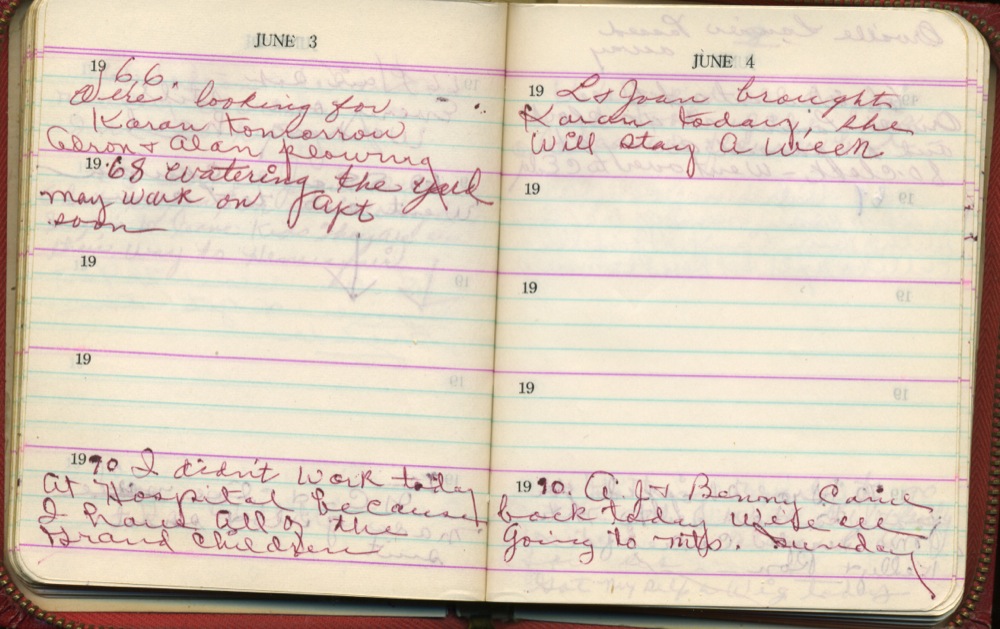 JUNE 3
1966.
We're looking for
Karan tomorrow
+ Alan plowing
19 68 watering the yard
may work on Apt
soon
19
19
1990 I didn't work today
at Hospital because
I have all of the
Grand children
JUNE 4
19 L + Joan brought
Karan today, she
Will stay a week
19
19
19
1990. A.J + Benny came
back today We're all
Going to mts. Sunday